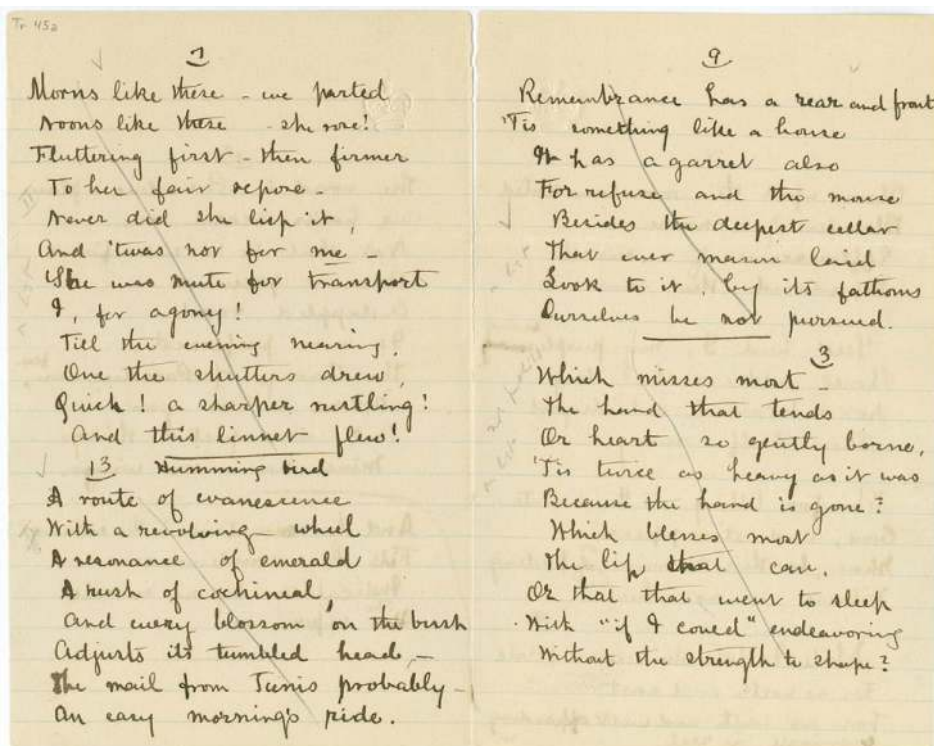 Tr 45a
7
Morns like these - we parted
Noons like these - she rose!
Fluttering first - then firmer
To her fair repose -
Never did she lisp it,
And 'twas not for me -
She was mute for transport
I, for agony!
Till the evening nearing,
One the shutters drew,
Quick! a sharper rustling!
And this linnet flew!
13 Humming bird
A route of evanescence
With a revolving wheel
A resonance of emerald
A rush of cochineal,
And every blossom on the bush
Adjusts its tumbled head, -
The mail from Tunis probably -
An easy morning's ride.
9
Remembrance has a rear and front
'Tis something like a house
It has a garret also
For refuse and the mouse
Besides the deepest cellar
That ever mason laid
Look to it, by its fathoms
Ourselves be not pursued.
3
Which misses most -
The hand that tends
Or heart so gently borne,
'Tis twice as heavy as it was
Because the hand is gone?
Which blesses most
The lip that can,
Or that that went to sleep
With "if I could" endeavoring
Without the strength to shape?